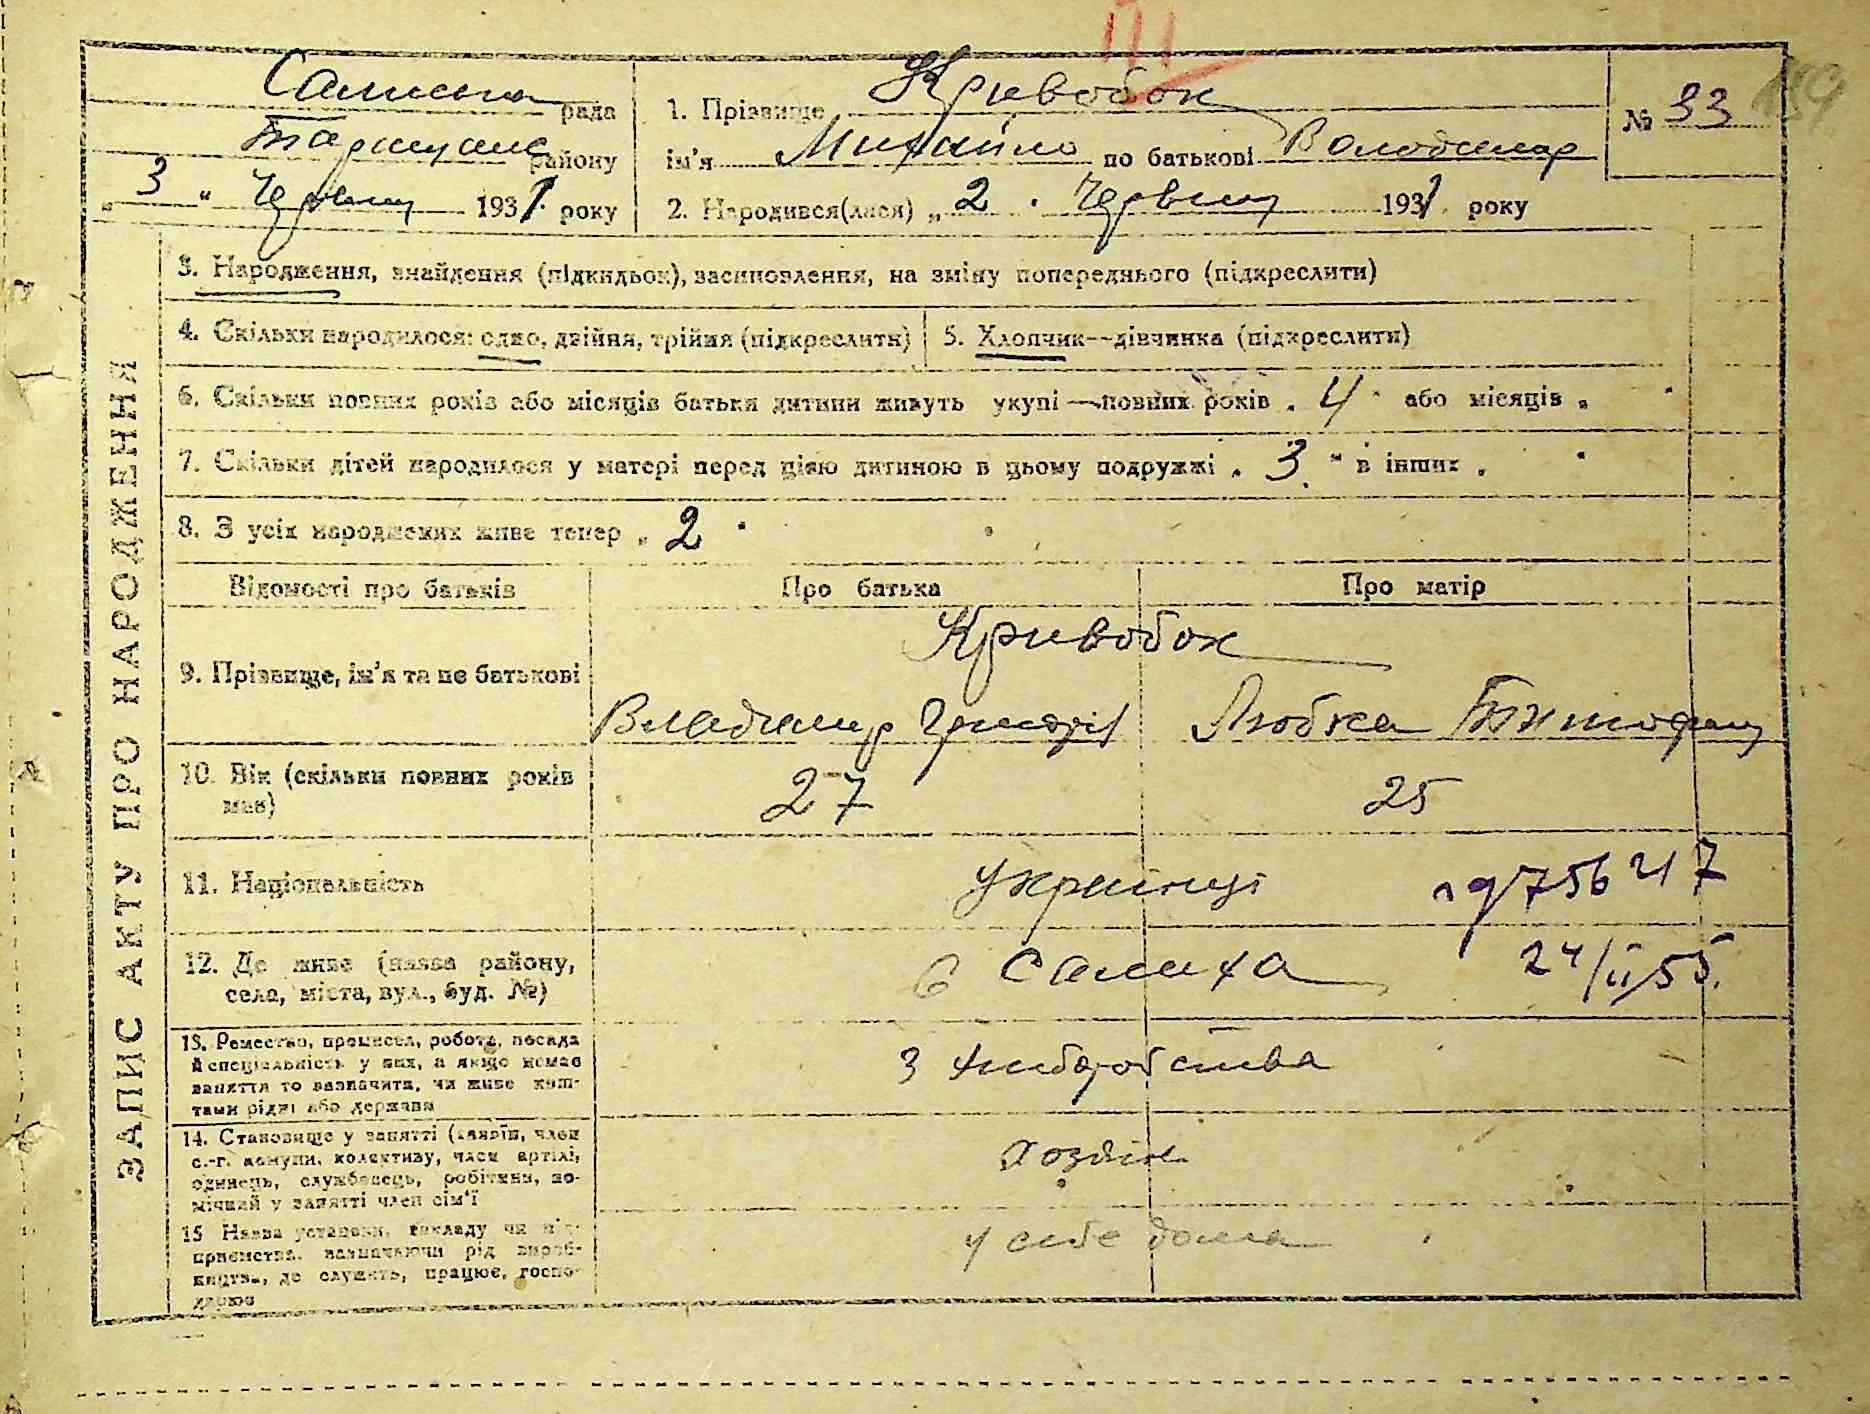 III
Салиська рада
Таращанс району
„ 3 “ Червня 1931. року
1. Прізвище Кривобок
ім'я Михайло по батькові Володимир
2. Народився(лася) „ 2 “ Червня 1931. року
№ 33
159
ЗАПИС АКТУ ПРО НАРОДЖЕННЯ
3. Народження, знайдення (підкидьок), засиновлення, на зміну попереднього (підкреслити)
4. Скільки народилося: одно, двійня, трійня (підкреслити)
5. Хлопчик—дівчинка (підкреслити)
6. Скільки повних років або місяців батьки дитини живуть укупі — повних років „ 4 “ або місяців „
7. Скільки дітей народилося у матері перед цією дитиною в цьому подружжі „ 3 “ в інших „ “
8. З усіх народжених живе тепер „ 2 “
Відомості про батьків
Про батька
Про матір
9. Прізвище, ім'я та по батькові
Кривобок
Владимир Григорі
Любка Тимофеи
10. Вік (скільки повних років має)
27
25
11. Національність
українці
756217
12. Де живе (назва району, села, міста, вул., буд. №)
с Салиха
24/II 55.
13. Ремество, промисел, робота, посада
й спеціяльність у них, а якщо немає
заняття то зазначити, чи живе кош-
тами рідні або держави
З хліборобства
14. Становище у занятті (хазяїн, член
с.-г. комуни, колективу, член артілі,
одинець, службовець, робітник, по-
мічний у занятті член сім'ї
Хозяін
15 Назва установи, закладу чи під-
приємства, зазначаючи рід вироб-
ництва, де служить, працює, госпо-
дарює
у себе дома